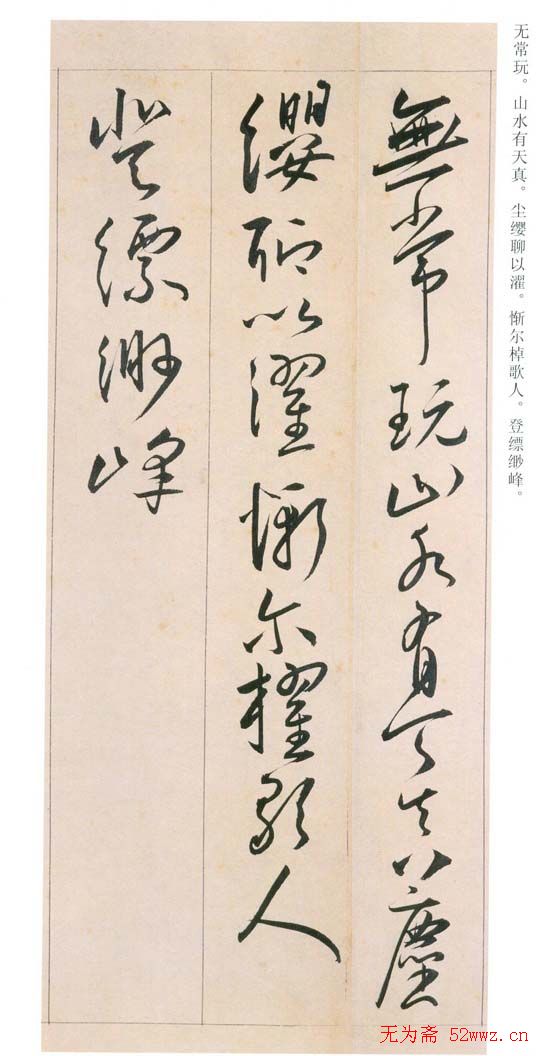 无常玩。山水有天真。尘缨聊以濯。惭尔棹歌人。登缥缈峰。
無常玩山水有天真塵
纓聊以濯慚尔櫂歌人
登縹緲峰
无为斋 52wwz.cn